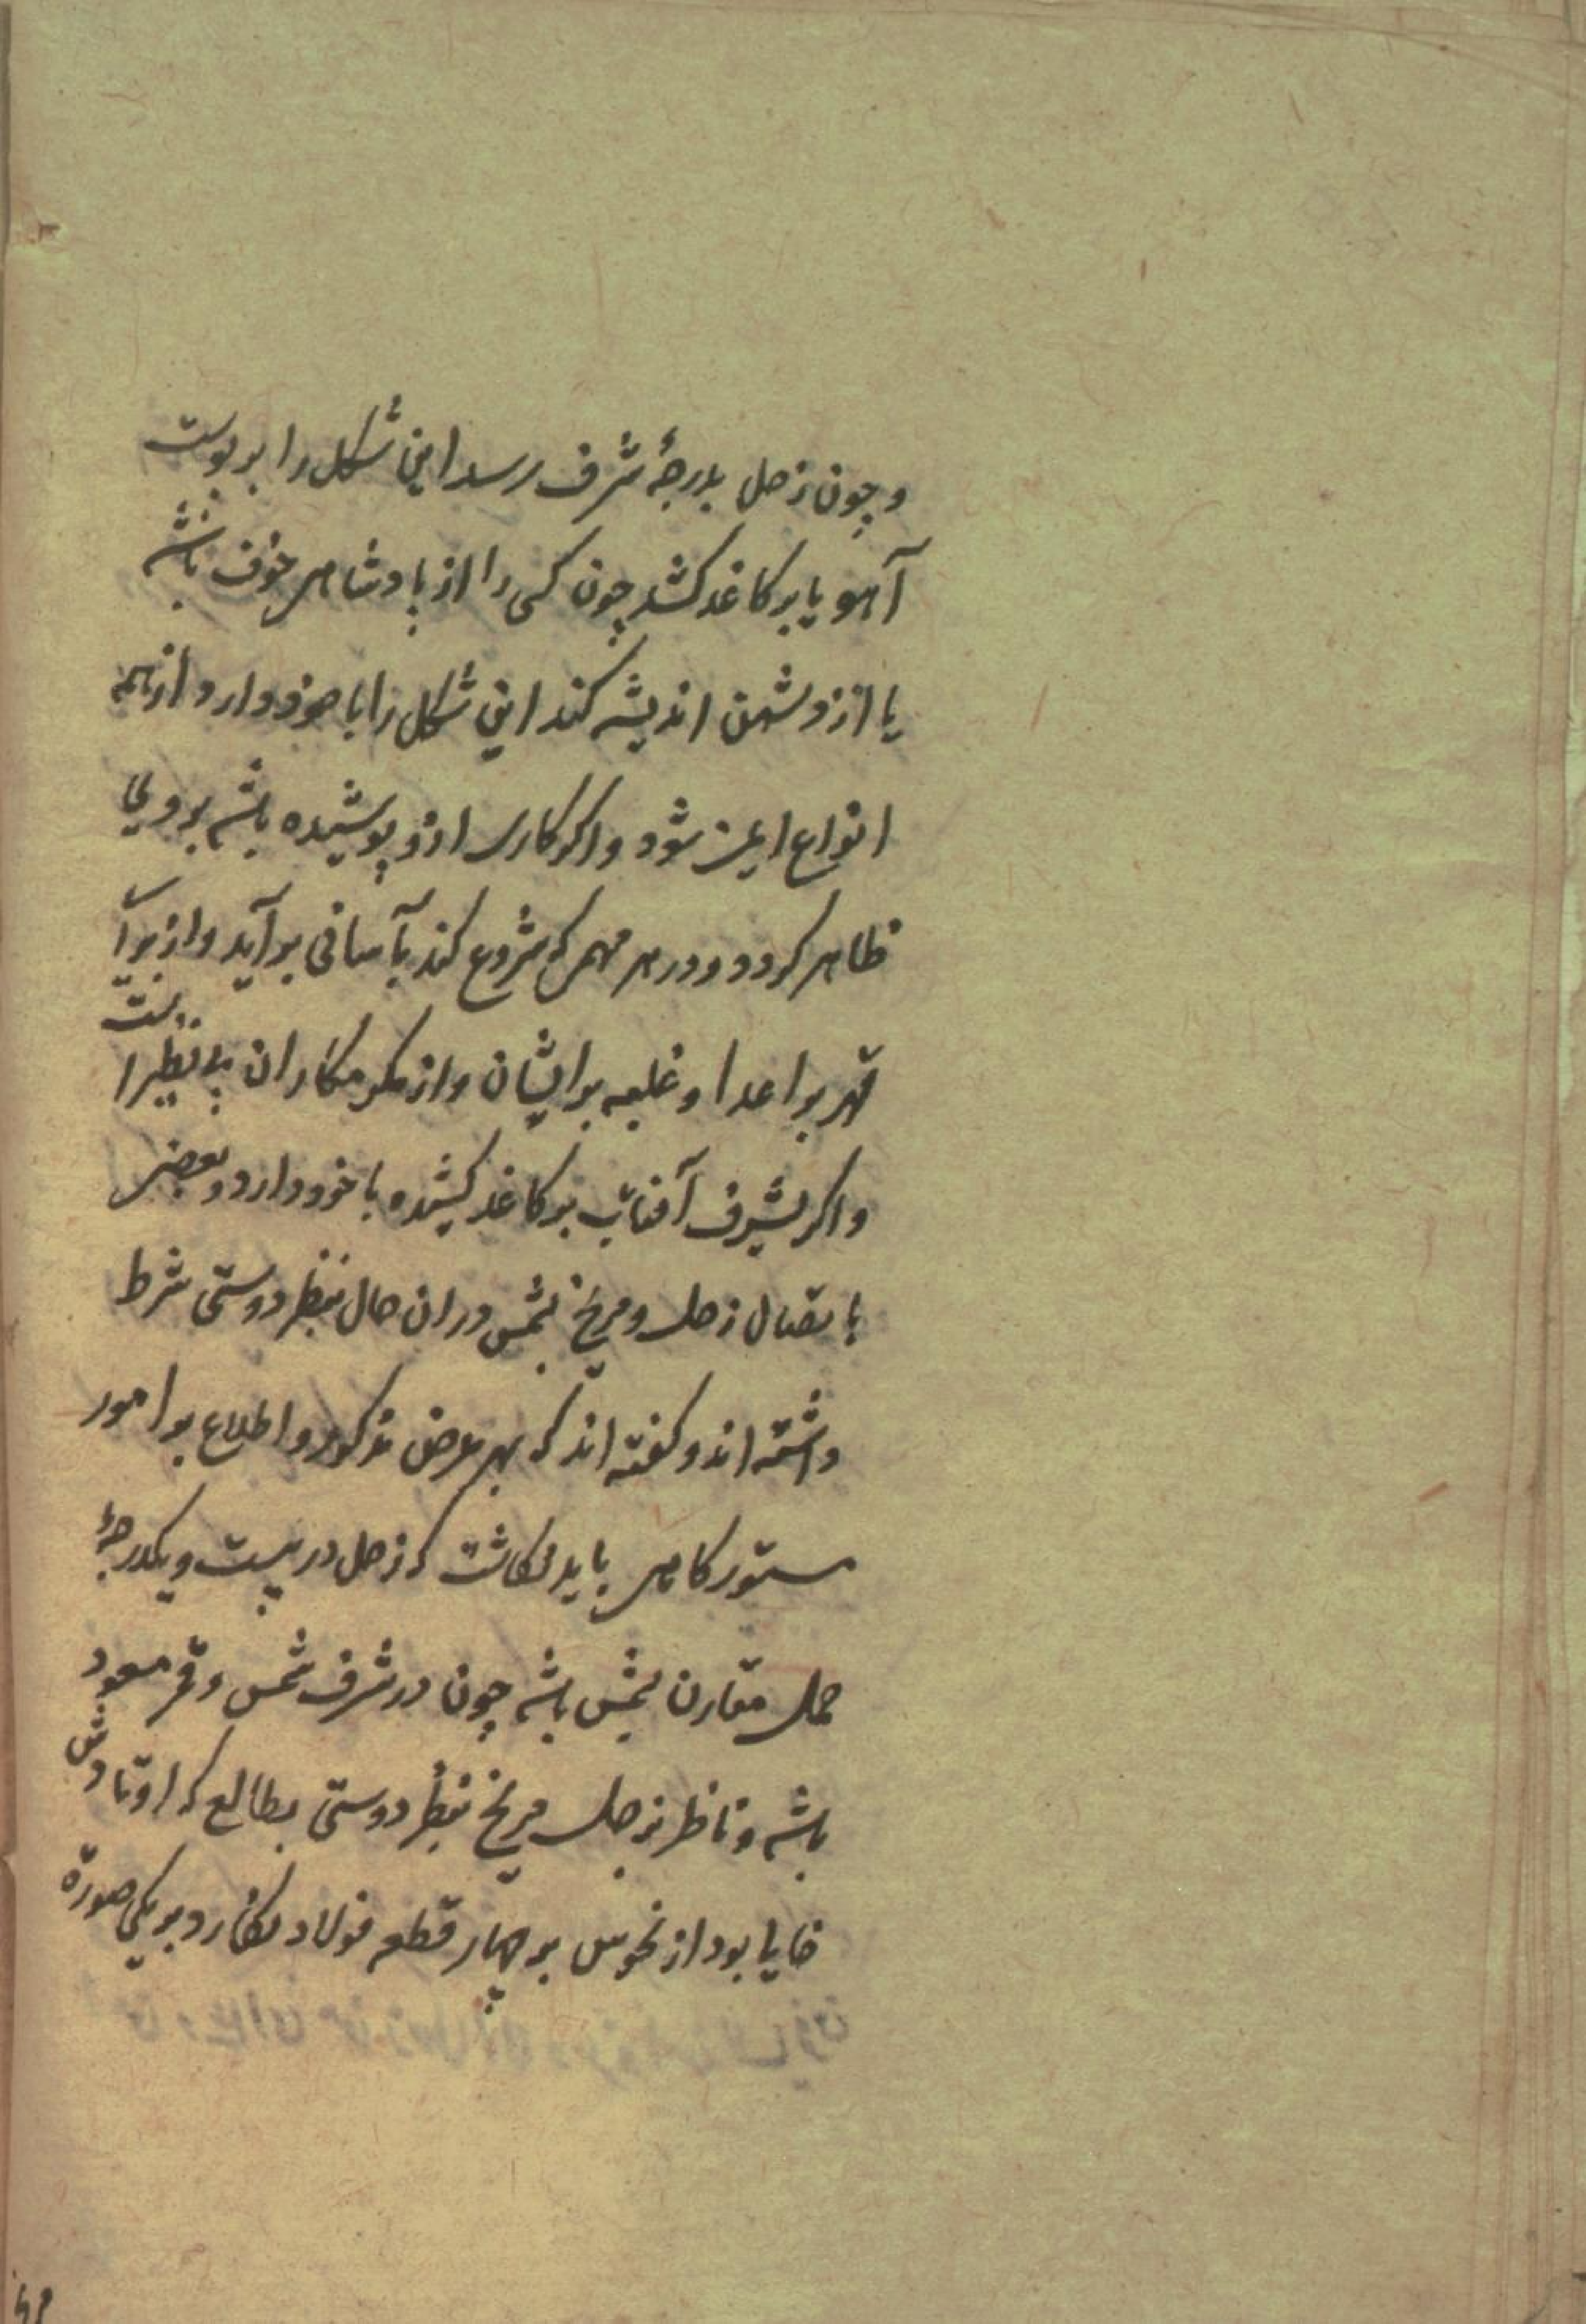 و چون زحل بدرجهٔ شرف رسد این شکل را بر پوست
آهو یا بر کاغذ کشد چون کسی را از پادشاهی خوف باشد
یا از دشمن اندیشه کند این شکل را با خود دارد از همه
انواع ایمن شود و اکر کاری ازو پوشیده باشد بر وی
ظاهر کردد و در هر مهمی که شروع کند بآسانی برآید و از برای
قهر بر اعدا و غلبه بر ایشان و از مکر مکاران بی نظیر است
و اکر بشرف آفتاب بر کاغذ کشیده با خود دارد و بعضی
باتصال زحل و مریخ بشمس در ان حال بنظر دوستی شرط
داشته اند و کفته اند که بهر غرض مذکور و اطلاع بر امور
مستور کاهی باید نکاشت که زحل در بیست و یکدرجهٔ
حمل مقارن بشمس باشد چون در شرف شمس و قمر مسعود
باشد و ناظر بزحل مریخ بنظر دوستی بطالع که اوتادش
خالیا بود از نحوس بر چهار قطعه فولاد نکارد بر یکی صورة